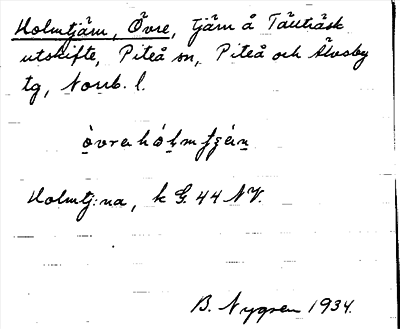 Holmtjärn, Övre, tjärn å Täuträsk
utskifte, Piteå sn, Piteå och Älvsby
tg, Norrb. l.
Holmtj:na, k G. 44 NV.
B. Nygren 1934.